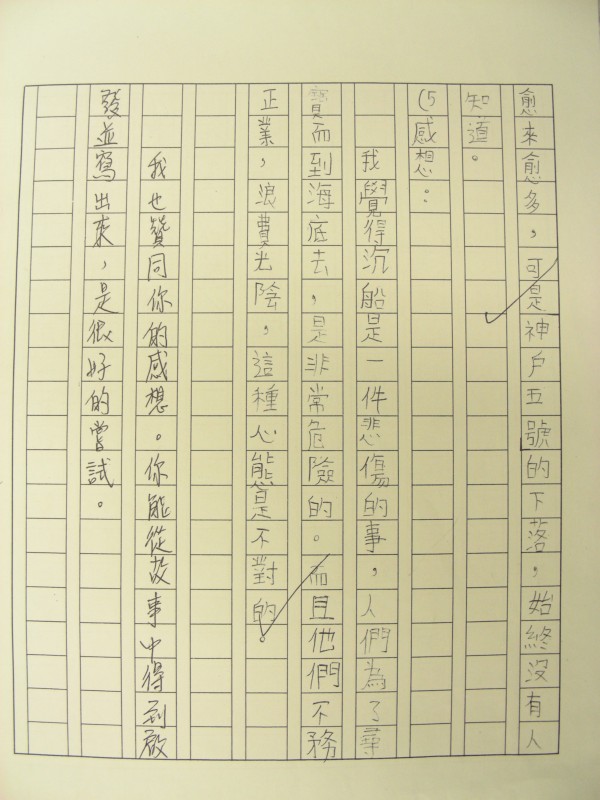 愈來愈多，可是神戶五號的下落，始終沒有人
知道。
(5感想：
我覺得沉船是一件悲傷的事，人們為了尋
寶而到海底去，是非常危險的。而且他們不務
正業，浪費光陰，這種心態是不對的。
我也贊同你的感想。你能從故事中得到啟
發並寫出來，是很好的嘗試。